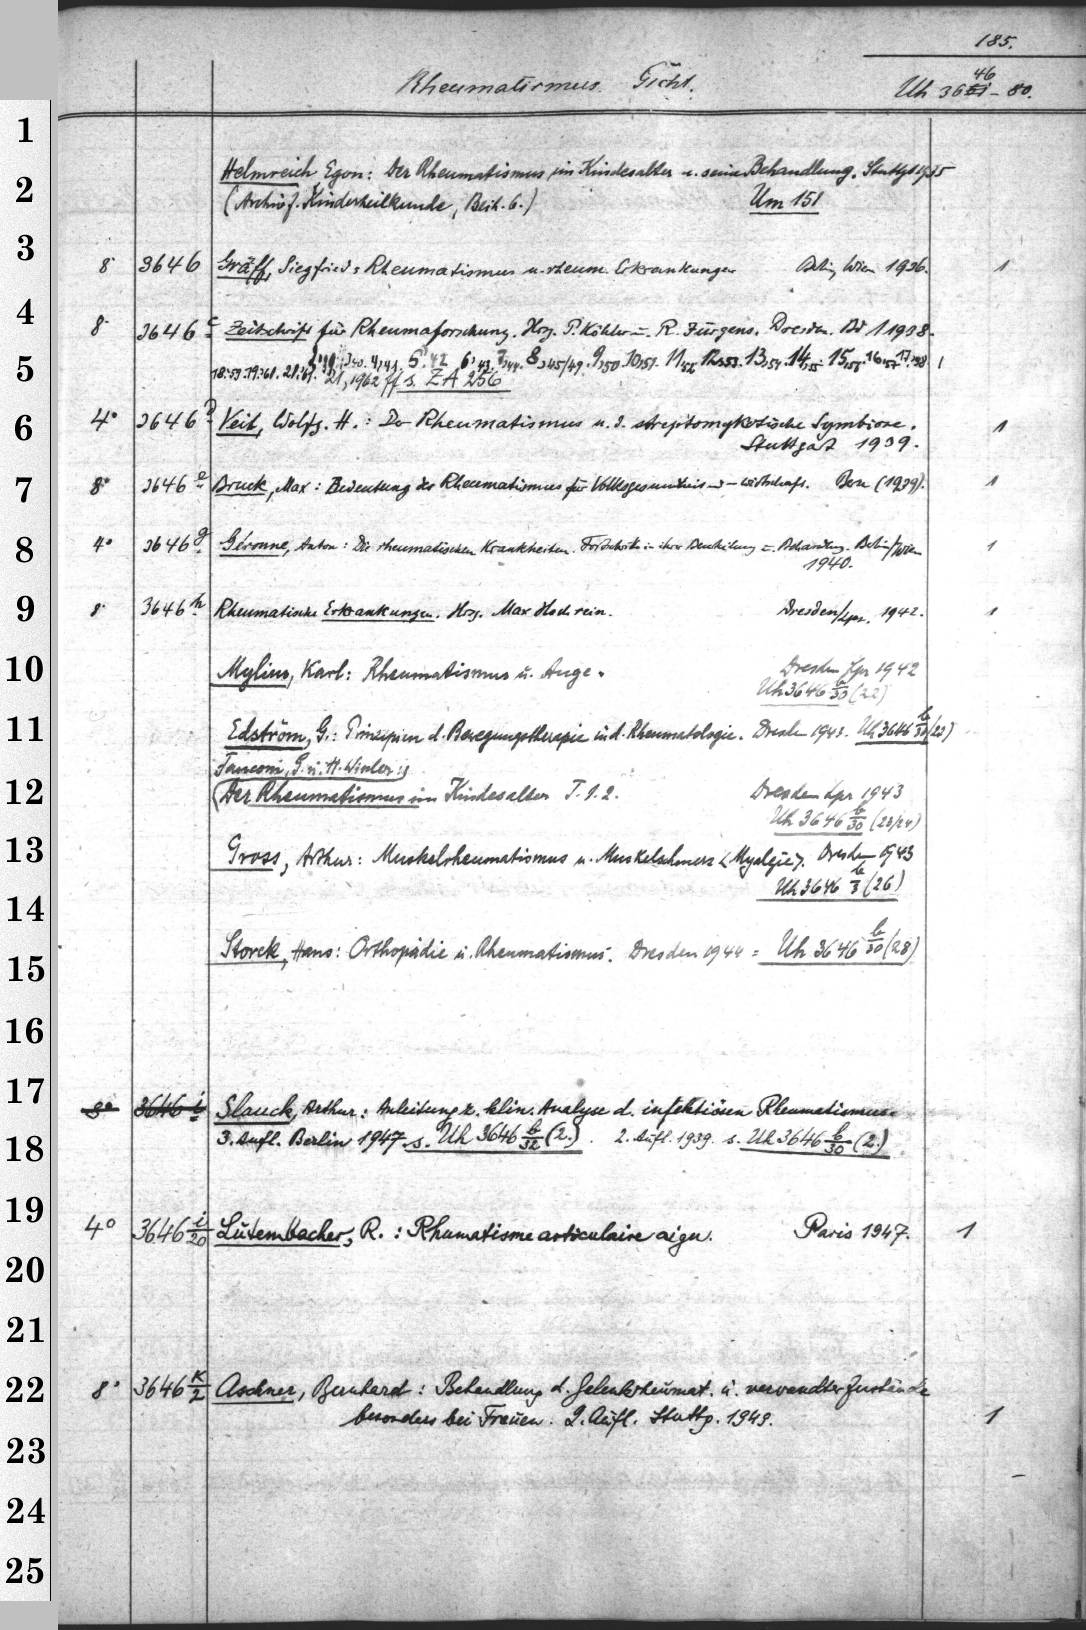 185.
Rheumatismus. Gicht.
46
Uh 3651 - 80.
1
Helmreich Egon: Der Rheumatismus im Kindesalter u. seine Behandlung. Stuttgt 1935
2
(Archiv f. Kinderheilkunde, Beih. 6.) Um 151
3
8° 3646 Gräff, Siegfried: Rheumatismus u. rheum. Erkrankungen Berlin, Wien 1936. 1
4
8° 3646 c Zeitschrift für Rheumaforschung. Hrsg. P. Köhler u. R. Jürgens. Dresden. Bd 1 1938.
5
5,42 6,43 7,44. 8,45/49. 9,50. 10,51. 11,52 12,53. 13,54. 14,55. 15,56. 16,57 17,58 1
18,59. 19,60. 21,1962 ff s. ZA 256
6
4° 3646 Veil, Wolfg. H.: Der Rheumatismus u. d. streptomykotische Symbiose. 1
Stuttgart 1939.
7
8° 3646 e Bruck, Max: Bedeutung des Rheumatismus für Volksgesundheit u. -wirtschaft. Bern (1939). 1
8
4° 3646 g Géronne, Anton: Die rheumatischen Krankheiten. Fortschritte in ihrer Beurteilung u. Behandlung. Berlin/Wien 1
1940.
9
8° 3646 h Rheumatische Erkrankungen. Hrsg. Max Hochrein. Dresden/Lpz. 1942. 1
10
Mylius, Karl: Rheumatismus u. Auge. Dresden Lpz 1942
Uh 3646 b/30 (22)
11
Edström, G.: Prinzipien d. Bewegungstherapie in d. Rheumatologie. Dresden 1943. Uh 3646 b/30 (23)
Fanconi, G. u. H. Wissler:
12
Der Rheumatismus im Kindesalter T. 1. 2. Dresden Lpz 1943
Uh 3646 b/30 (23/24)
13
Gross, Arthur: Muskelrheumatismus u. Muskelschmerz <Myalgie>. Dresden 1943
Uh 3646 b/3 (26)
14
15
Storck, Hans: Orthopädie u. Rheumatismus. Dresden 1944 = Uh 3646 b/30 (28)
16
17
8° 3646 i Slauck, Arthur: Anleitung z. klin. Analyse d. infektiösen Rheumatismus.
18
3. Aufl. Berlin 1947 s. Uh 3646 b/32 (2.). 2. Aufl. 1939. s. Uh 3646 b/30 (2.)
19
4° 3646 i/20 Lutembacher, R.: Rhumatisme articulaire aigu. Paris 1947. 1
20
21
22
8° 3646 K/2 Aschner, Bernhard: Behandlung d. Gelenkrheumat. u. verwandter Zustände
besonders bei Frauen. 2. Aufl. Stuttg. 1949. 1
23
24
25